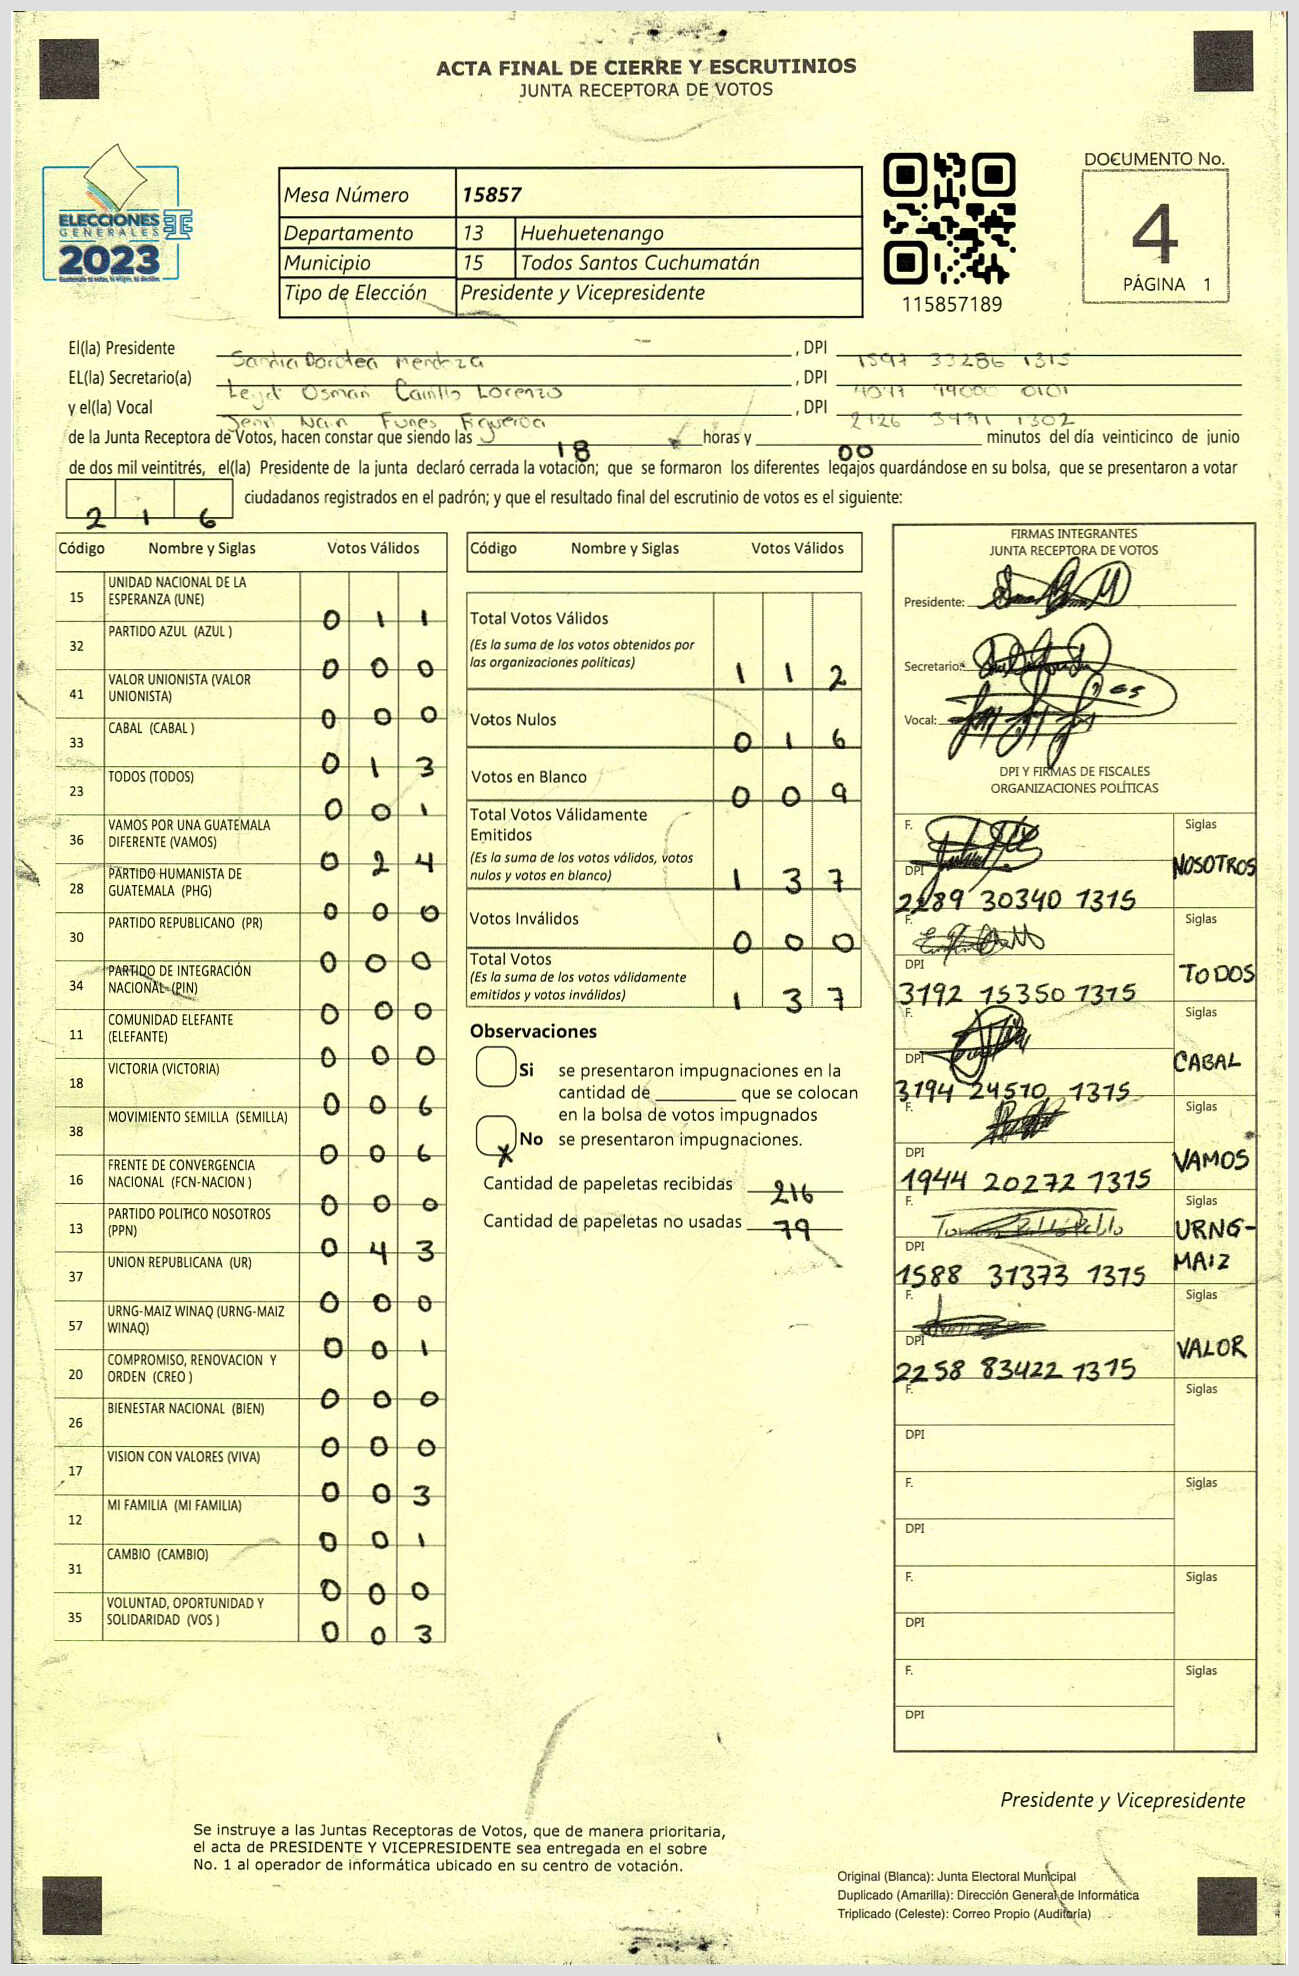 ACTA FINAL DE CIERRE Y ESCRUTINIOS
JUNTA RECEPTORA DE VOTOS
ELECCIONES
GENERALES
2023
Mesa Número 15857
Departamento 13 Huehuetenango
Municipio 15 Todos Santos Cuchumatán
Tipo de Elección Presidente y Vicepresidente
115857189
DOCUMENTO No.
4
PÁGINA 1
El(la) Presidente Sandra Dorotea Mendoza , DPI 1597 33286 1315
EL(la) Secretario(a) Osman Camilo Lorenzo , DPI 0101
y el(la) Vocal Funes Figueroa , DPI 2126 1302
de la Junta Receptora de Votos, hacen constar que siendo las 18 horas y 00 minutos del día veinticinco de junio
de dos mil veintitrés, el(la) Presidente de la junta declaró cerrada la votación; que se formaron los diferentes legajos guardándose en su bolsa, que se presentaron a votar
216 ciudadanos registrados en el padrón; y que el resultado final del escrutinio de votos es el siguiente:
Código Nombre y Siglas Votos Válidos
15 UNIDAD NACIONAL DE LA ESPERANZA (UNE) 0 1 1
32 PARTIDO AZUL (AZUL ) 0 0 0
41 VALOR UNIONISTA (VALOR UNIONISTA) 0 0 0
33 CABAL (CABAL ) 0 1 3
23 TODOS (TODOS) 0 0 1
36 VAMOS POR UNA GUATEMALA DIFERENTE (VAMOS) 0 2 4
28 PARTIDO HUMANISTA DE GUATEMALA (PHG) 0 0 0
30 PARTIDO REPUBLICANO (PR) 0 0 0
34 PARTIDO DE INTEGRACIÓN NACIONAL (PIN) 0 0 0
11 COMUNIDAD ELEFANTE (ELEFANTE) 0 0 0
18 VICTORIA (VICTORIA) 0 0 6
38 MOVIMIENTO SEMILLA (SEMILLA) 0 0 6
16 FRENTE DE CONVERGENCIA NACIONAL (FCN-NACION ) 0 0 0
13 PARTIDO POLITICO NOSOTROS (PPN) 0 4 3
37 UNION REPUBLICANA (UR) 0 0 0
57 URNG-MAIZ WINAQ (URNG-MAIZ WINAQ) 0 0 1
20 COMPROMISO, RENOVACION Y ORDEN (CREO ) 0 0 0
26 BIENESTAR NACIONAL (BIEN) 0 0 0
17 VISION CON VALORES (VIVA) 0 0 3
12 MI FAMILIA (MI FAMILIA) 0 0 1
31 CAMBIO (CAMBIO) 0 0 0
35 VOLUNTAD, OPORTUNIDAD Y SOLIDARIDAD (VOS ) 0 0 3
Código Nombre y Siglas Votos Válidos
Total Votos Válidos
(Es la suma de los votos obtenidos por
las organizaciones políticas) 1 1 2
Votos Nulos 0 1 6
Votos en Blanco 0 0 9
Total Votos Válidamente
Emitidos
(Es la suma de los votos válidos, votos
nulos y votos en blanco) 1 3 7
Votos Inválidos 0 0 0
Total Votos
(Es la suma de los votos válidamente
emitidos y votos inválidos) 1 3 7
Observaciones
Si se presentaron impugnaciones en la
cantidad de ________ que se colocan
en la bolsa de votos impugnados
X No se presentaron impugnaciones.
Cantidad de papeletas recibidas 216
Cantidad de papeletas no usadas 79
FIRMAS INTEGRANTES
JUNTA RECEPTORA DE VOTOS
Presidente:
Secretario:
Vocal:
DPI Y FIRMAS DE FISCALES
ORGANIZACIONES POLÍTICAS
F. Siglas
NOSOTROS
DPI
2289 30340 1315
F. Siglas
TODOS
DPI
3192 15350 1315
F. Siglas
CABAL
DPI
3194 24570 1315
F. Siglas
VAMOS
DPI
1944 20272 1315
F. Siglas
URNG-
MAIZ
DPI
1588 31373 1315
F. Siglas
VALOR
DPI
2258 83422 1315
F. Siglas
DPI
F. Siglas
DPI
F. Siglas
DPI
F. Siglas
DPI
Presidente y Vicepresidente
Se instruye a las Juntas Receptoras de Votos, que de manera prioritaria,
el acta de PRESIDENTE Y VICEPRESIDENTE sea entregada en el sobre
No. 1 al operador de informática ubicado en su centro de votación.
Original (Blanca): Junta Electoral Municipal
Duplicado (Amarilla): Dirección General de Informática
Triplicado (Celeste): Correo Propio (Auditoría)